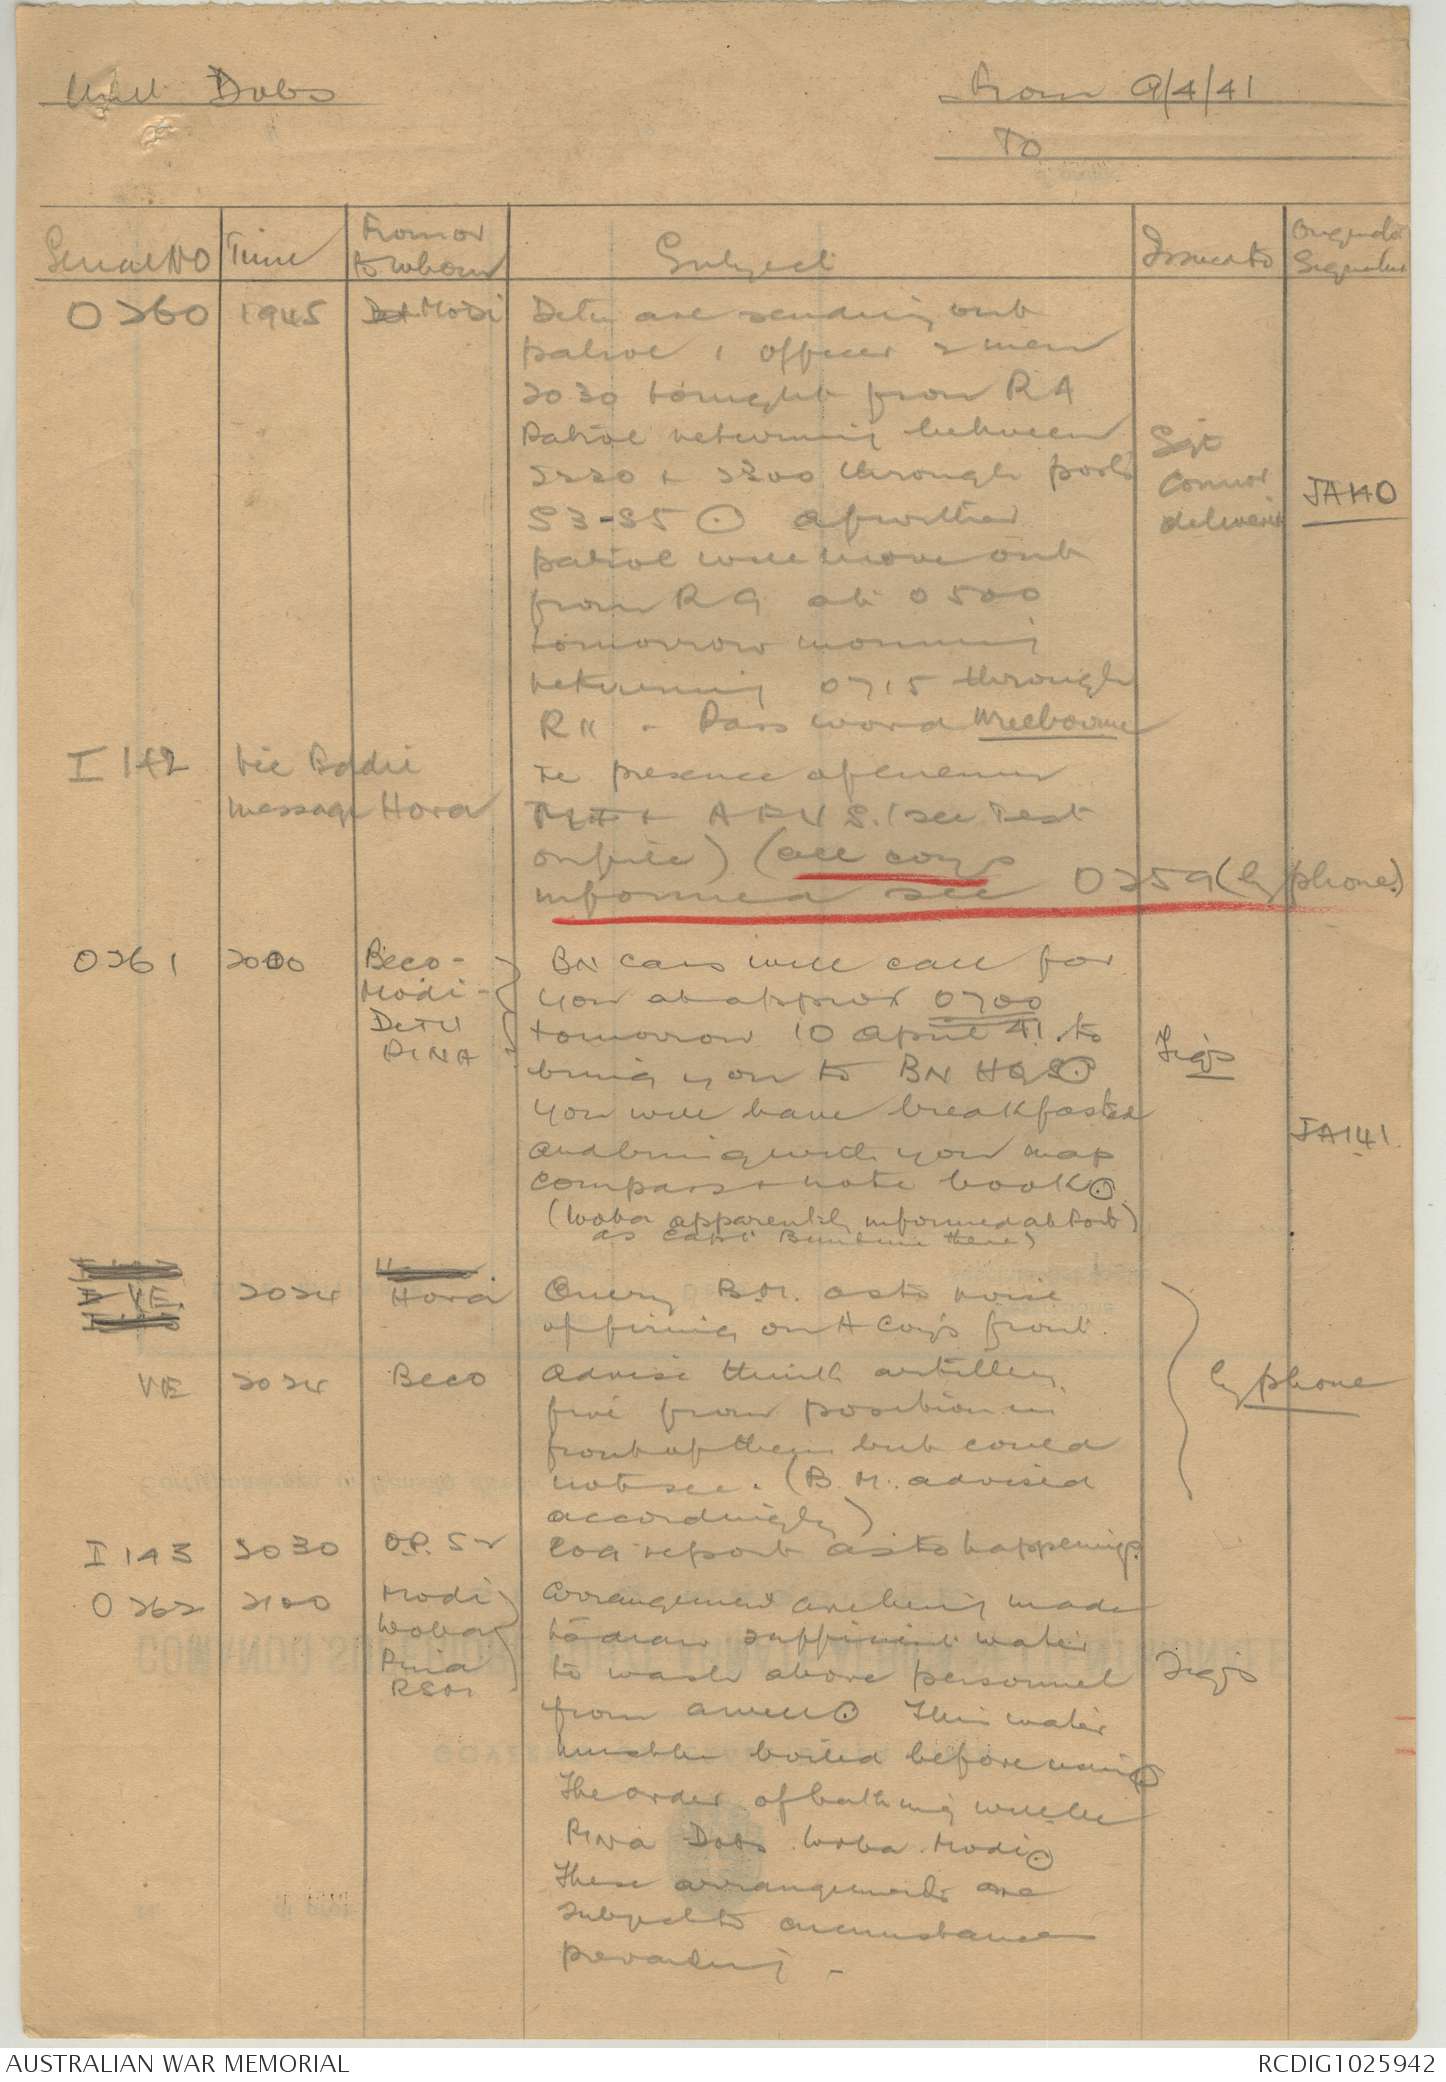 Unit Dobs
From 9/4/41
To
Serial No Time From or to whom Subject Issued to Originator Signature
O260 1945 Modi Detu are sending out
patrol 1 officer 2 men
2030 tonight from R4
Patrol returning between
2220 + 2300 through posts
S3-S5 ⊙ a further
patrol will move out
from R9 at 0500
tomorrow morning
returning 0715 through
R11 - Pass word Melbourne
Sgt
Connor
delivered
JA140
I 142 Vic Badii
message Hora
re presence of enemy
+ AFVS. (see Test
on file) (all coys
informed see O259 (by phone.)
O261 2000 Beco -
Modi -
DETU
PINA
BN cars will call for
you at approx 0700
tomorrow 10 April 41. to
bring you to BN HQS ⊙
you will have breakfasted
and bring with you map
compass + note book ⊙
(Woba apparently informed at Port)
as Capt there)
Sigs
JA141.
VE. 2024 Hora Query B.M. as to noise
of firing on A Coy's front.
VE 2024 Beco Advise think artillery
fire from position in
front of them but could
not see. (B.M. advised
accordingly)
by phone
I 143 2030 O.P. S2 Log report as to happenings.
O 262 2100 Modi
Woba
Pina
RSM
Arrangement are being made
to draw sufficient water
to wash above personnel
from a well ⊙ This water
must be boiled before using ⊙
The order of bathing will be
PINA Dobs. Woba. Modi ⊙
These arrangements are
subject to circumstances
prevailing -
Sigs
AUSTRALIAN WAR MEMORIAL
RCDIG1025942